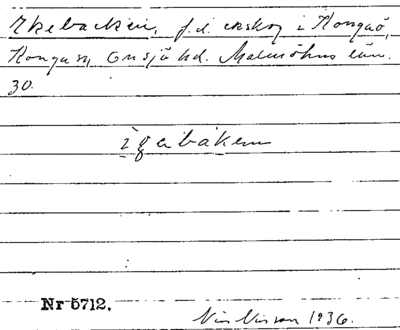 Ekebacken, f.d. ekskog i Kongaö,
Konga sn, Onsjö hd. Malmöhus län.
30.
ìgabákenn
Nr 5712.
Nils Nilsson 1936.